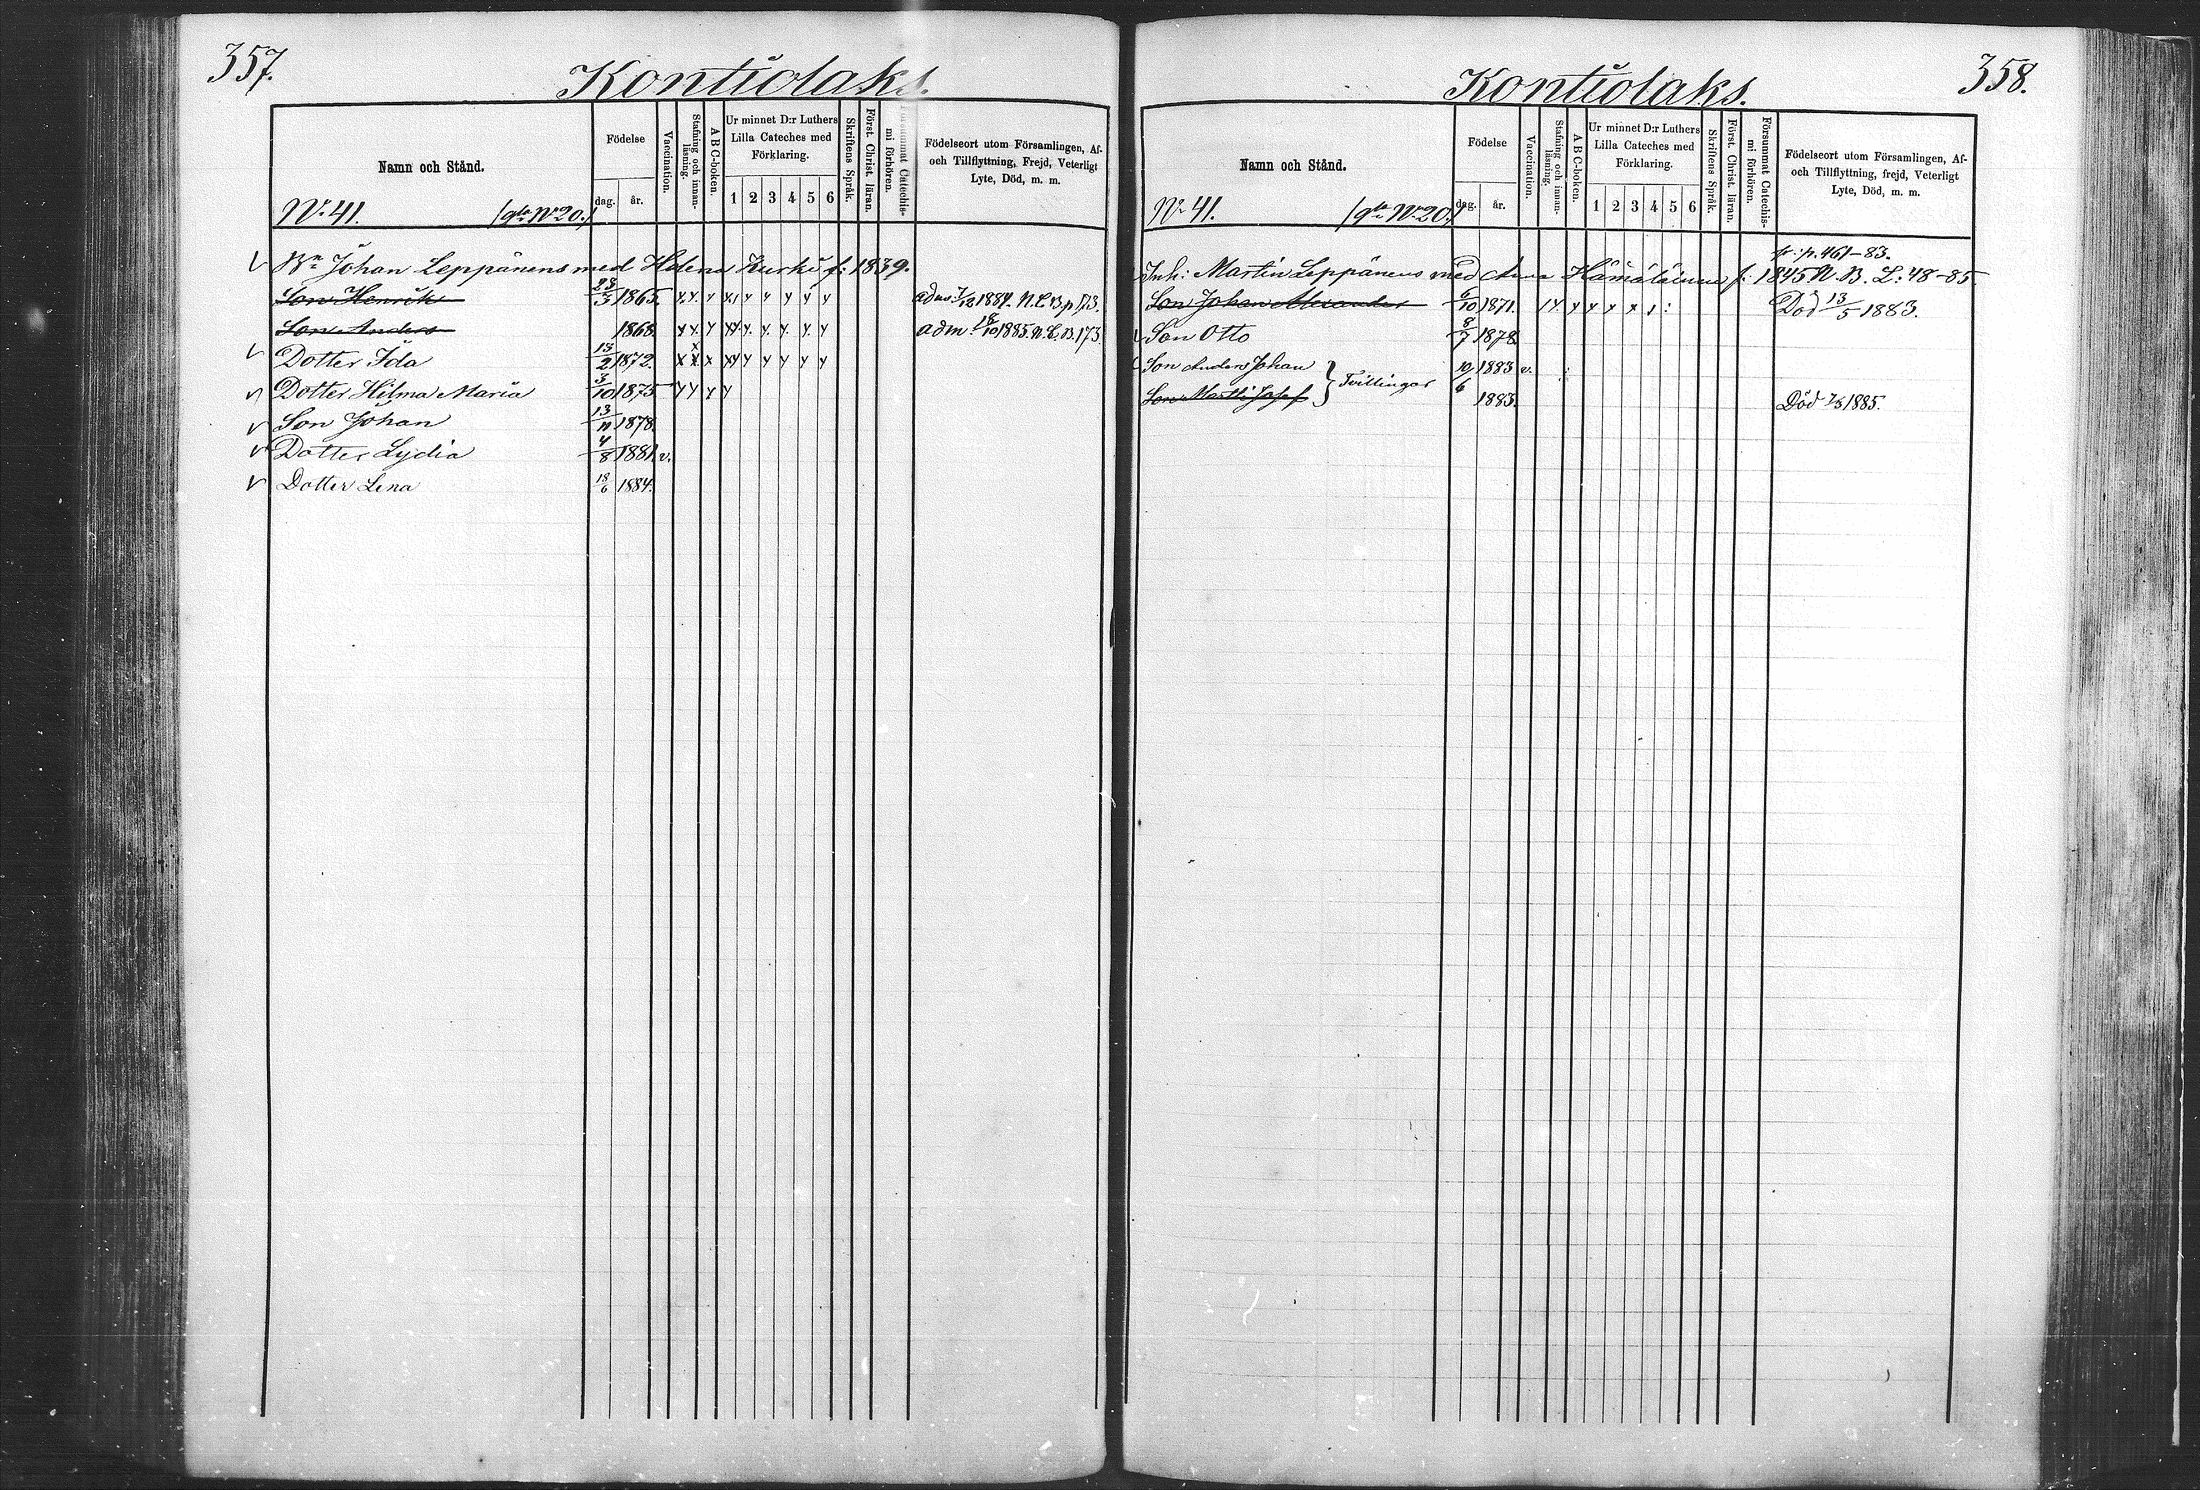 357.
Kontiolaks.
Namn och Stånd.
Födelse
dag. år.
Vaccination.
Stafning och innan-läsning.
A B C-boken.
Ur minnet D:r Luthers
Lilla Cateches med
Förklaring.
1 2 3 4 5 6
Skriftens Språk.
Först. Christ. läran.
Försummat Catechis-
mi förhören.
Födelseort utom Församlingen, Af-
och Tillflyttning, Frejd, Veterligt
Lyte, Död, m. m.
No 41. (gla No 20.)
Bn Johan Leppänens med Helena Kurki f: 1839.
Son Henrik 23/3 1865. adm 7/12 1884. N.L.B. p. 173.
Son Anders 1868. adm. 18/10 1885. N.L.B. 173.
Dotter Ida 13/2 1872.
Dotter Hilma Maria 3/10 1875
Son Johan 13/11 1878.
Dotter Lydia 4/8 1881. v.
Dotter Lena 18/6 1884.
358.
Kontiolaks.
Namn och Stånd.
Födelse
dag. år.
Vaccination.
Stafning och innan-läsning.
A B C-boken.
Ur minnet D:r Luthers
Lilla Cateches med
Förklaring.
1 2 3 4 5 6
Skriftens Språk.
Först. Christ. läran.
Försummat Catechis-
mi förhören.
Födelseort utom Församlingen, Af-
och Tillflyttning, frejd, Veterligt
Lyte, Död, m. m.
No 41. (gla No 20.)
fr: p. 461-83.
Inh: Martin Leppänens med Anna Hämäläinen f: 1845 N.B. L: 48-85.
Son Johan Alexander 6/10 1871. Död 13/5 1883.
Son Otto 8/7 1878.
Son Anders Johan 10/6 1883 v.
Tvillingar
Son Martti Josef 1883. Död 7/5 1885.